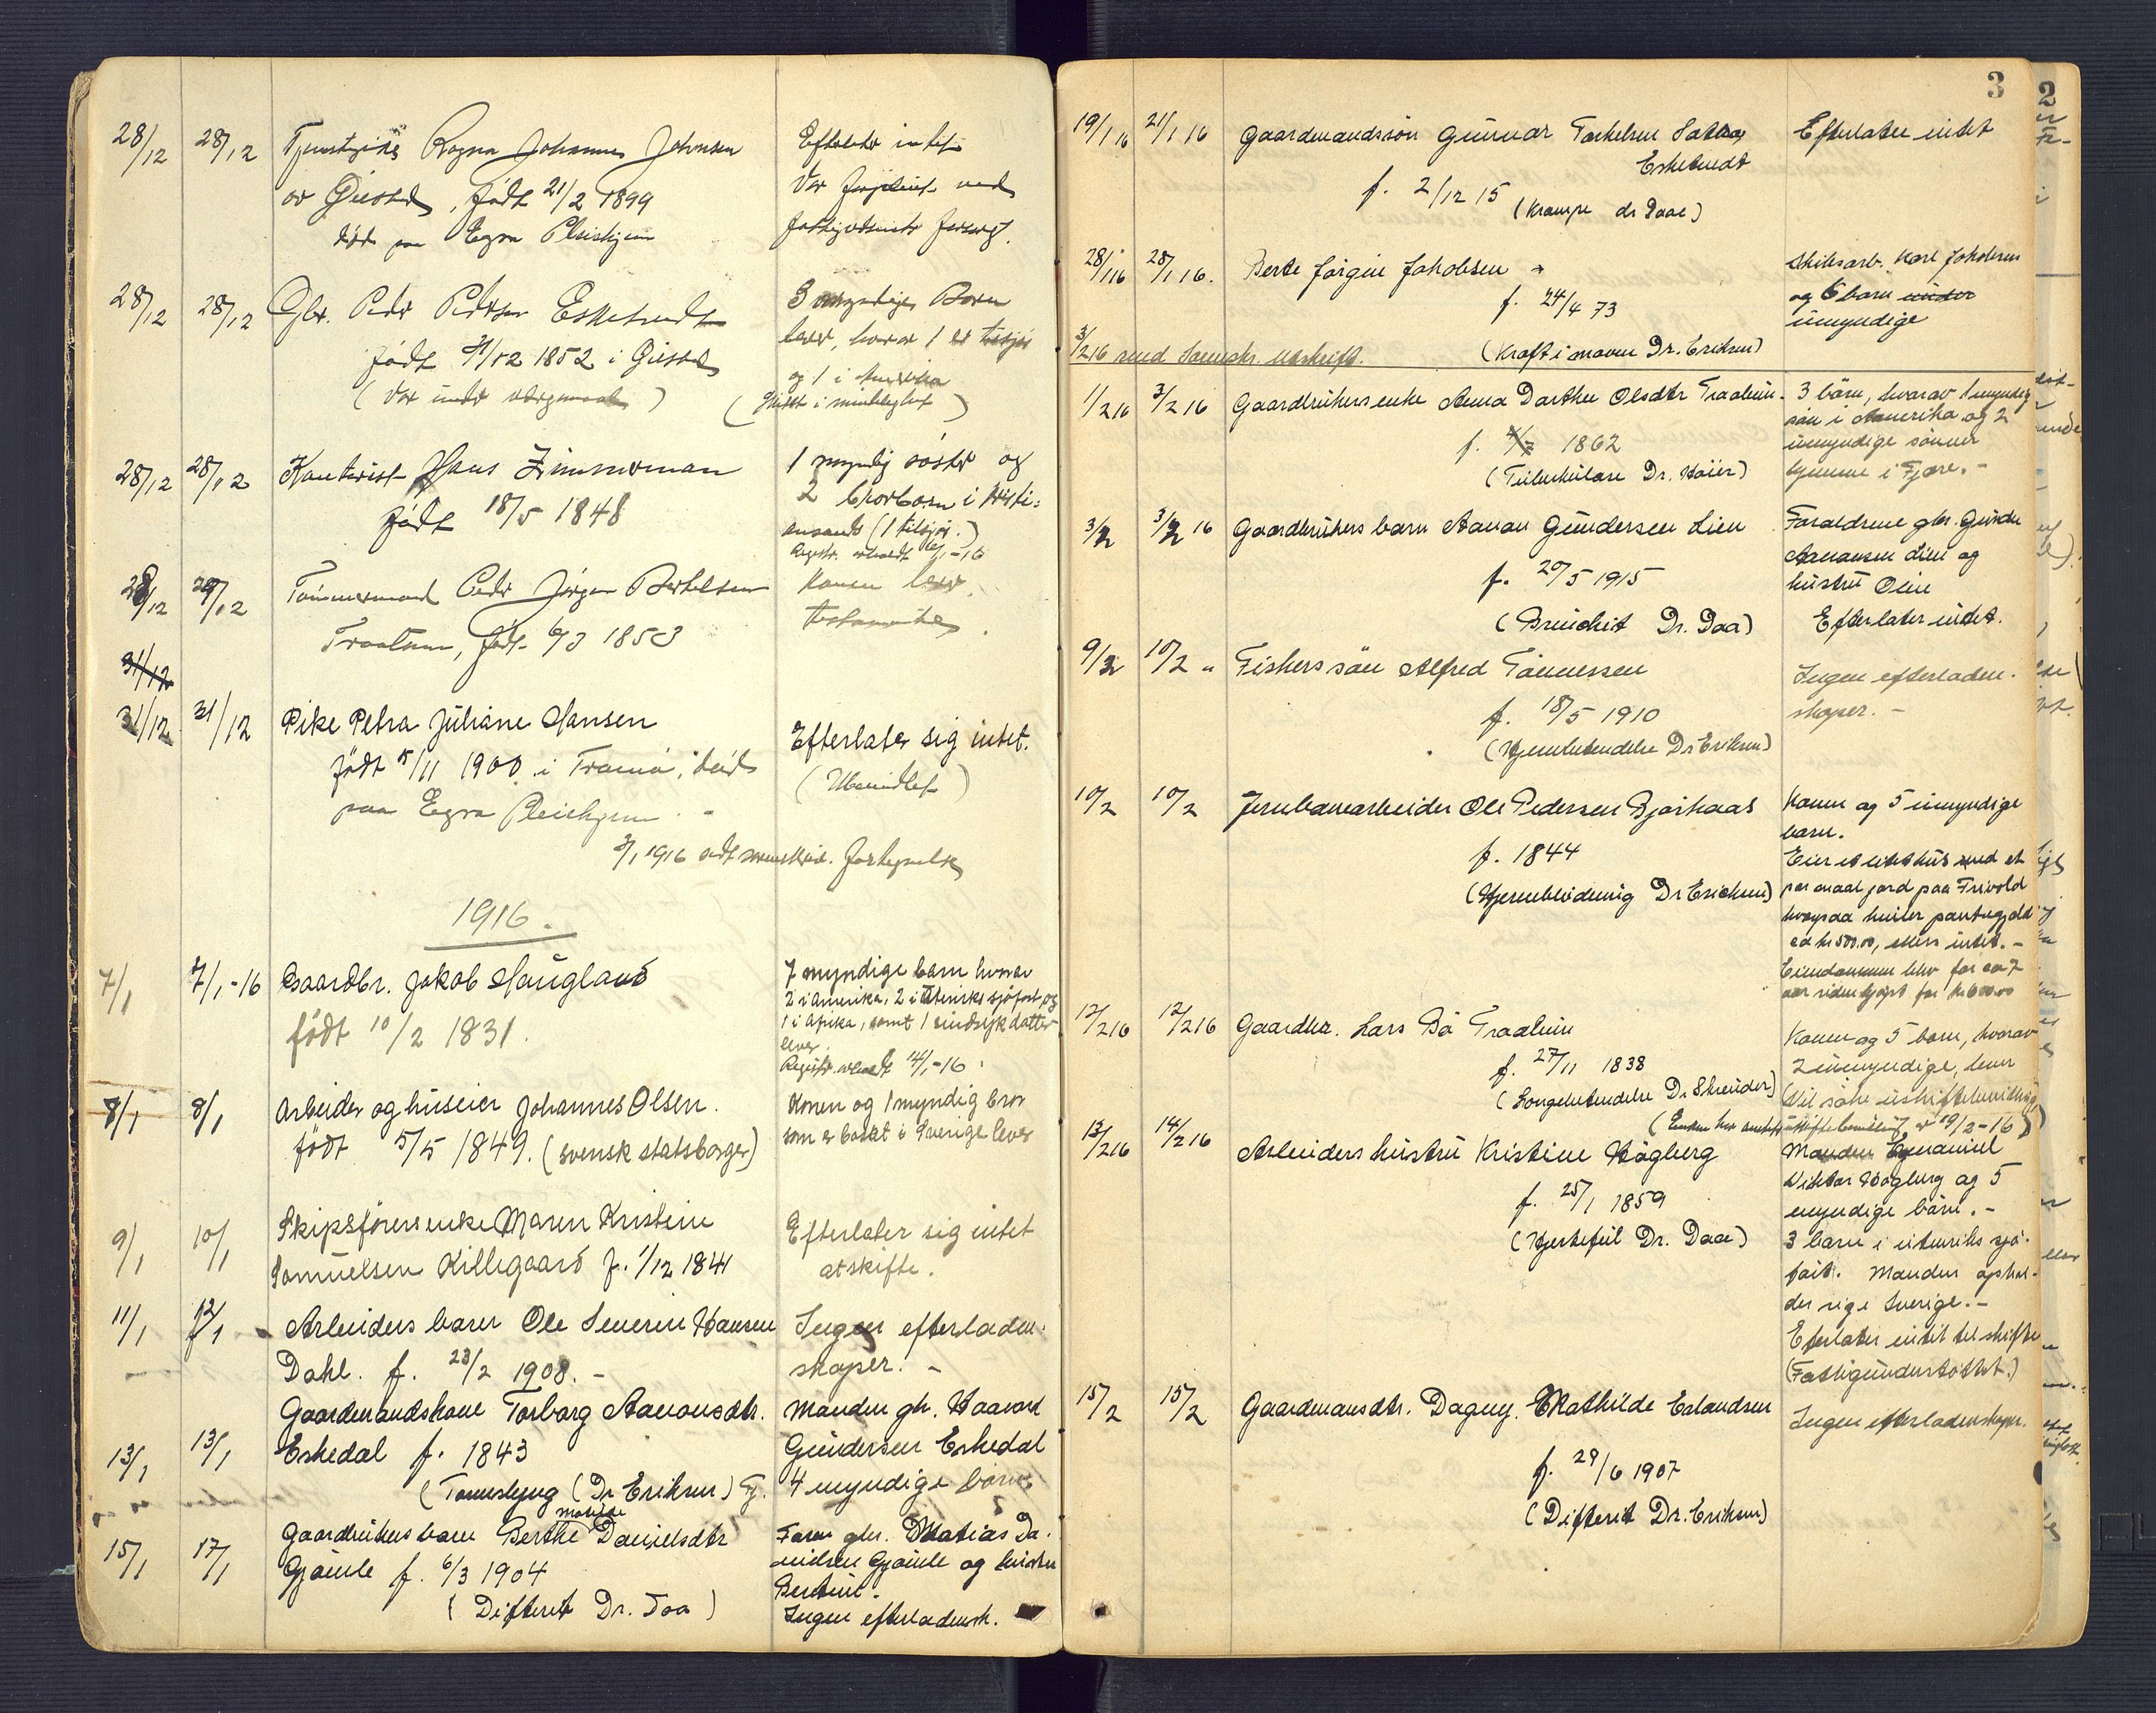 28/12 28/12 Tjenestpike Ragna Johanne Johnsen Efterlater intet
av Øiestad, født 21/2 1899 Var forpleiet ved
død paa Egra Pleiehjem fattigvæsenets forsorg.
28/12 28/12 Gbr. Peder Pedersen Esketveit 3 myndige Børn
født 1852 i Øiestad lever, hvorav 1 er tilsjøs
(Var under værgemaal) og 1 i Amerika
(Skifte i minnelighet)
28/12 28/12 Kontorist Hans Zimmerman 1 myndig søster og
født 18/5 1848 2 brorbørn i Kristi-
ansand (1 tilsjøs.)
-16
28/12 29/12 Tømmermand Peder Jørgen Bertelsen Konen lever.
født 1853 testamente
31/12
31/12 31/12 Pike Petra Juliane Hansen Efterlater sig intet.
født 5/11 1900 i Tromø, død (Ubemidlet)
paa Egra Pleiehjem. -
3/1 1916 fortegnelse
1916.
7/1 7/1-16 Gaardbr. Jakob Haugland 7 myndige barn hvorav
født 10/2 1831. 2 i Amerika, 2 i utenriks sjøfart og
1 i Afrika, samt 1 sindssyk datter
lever.
Registr. avholdt 14/1-16.
8/1 8/1 Arbeider og huseier Johannes Olsen. Konen og 1 myndig bror
født 5/5 1849. (svensk statsborger) som er bosat i Sverige lever
9/1 10/1 Skipsførerenke Maren Kristine Efterlater sig intet
Samuelsen Killegaard f. 1/12 1841 at skifte.
11/1 12/1 Arbeiders barn Ole Severin Hansen Ingen efterladen-
Dahl. f. 23/2 1908. - skaper. -
Gaardmandskone Torborg Aanonsdtr. Manden gbr. Haavard
13/1 13/1 Eskedal f. 1843 Gundersen Eskedal
(Dr Eriksen) 4 myndige børn
Matilde
Gaardbrukers barn Berthe Danielsdtr Faren gbr. Matias Da-
15/1 17/1 Gjømle f. 6/3 1904 nielsen Gjømle og hustru
(Difterit Dr. Daa) Bertine.
Ingen efterladensk.
3
19/1 16 21/1 16 Gaardmandssøn Gunnar Torkelsen Efterlater intet
Esketveit
f. 2/12 15 (Krampe dr Daae)
28/1 16 28/1 16. Berte Jørgine Jakobsen Skibsarb. Karl Jakobsen
f. 24/4 73 og 6 barn under
umyndige
3/2 16 send Sorenskr. utskrift. (Kræft i maven Dr. Eriksen)
1/2 16 3/2 16 Gaardbrukers enke Anna Dorthea Olsdtr 3 børn, hvorav 1 myndig
søn i Amerika og 2
f. 1862 umyndige sønner
(Tuberkulose Dr. Høier) hjemme i Fjære. -
3/2 3/2 16 Gaardbrukers barn Aanon Gundersen Lien Forældrene gbr. Gunder
Aanonsen Lien og
f. 20/5 1915 hustru Oline
(Bronchit Dr. Daa) Efterlater intet.
9/2 10/2 " Fiskers søn Alfred Tønnessen Ingen efterladen-
f. 18/5 1910 skaper. -
(Hjernebetændelse Dr Eriksen)
10/2 10/2 Jernbanearbeider Ole Pedersen Bjorhaas Konen og 5 umyndige
barn.
f. 1844 Eier et litet hus med et
(Hjerneblødning Dr Ericksen) par maal jord paa Frivold
hvorpaa hviler pantegjæld
ca kr 500.00, ellers intet. -
Eiendommen blev for ca 7
aar siden kjøpt for kr 600.00
12/2 16 12/2 16 Gaardbr. Lars Bø Konen og 5 barn, hvorav
f. 27/11 1838 2 umyndige, lever
(Lungebetændelse Dr. Skreuder) (Vil søke uskiftebevilling)
(Enken har anmeldt uskiftebevilling 19/2-16)
13/2 16 14/2 16 Arbeiders hustru Kristine Högberg Manden Emanuel
Viktor Högberg og 5
f. 25/1 1859 myndige børn. -
(Hjertefeil Dr. Daa) 3 børn i utenriks sjø-
fart. Manden ophol-
der sig i Sverige. -
Efterlater intet til skifte
(Fattigunderstøttet.)
15/2 15/2 Gaardmansdtr. Dagny Mathilde Erlandsen Ingen efterladenskaper.
f. 29/6 1907
(Difterit Dr. Eriksen)
2